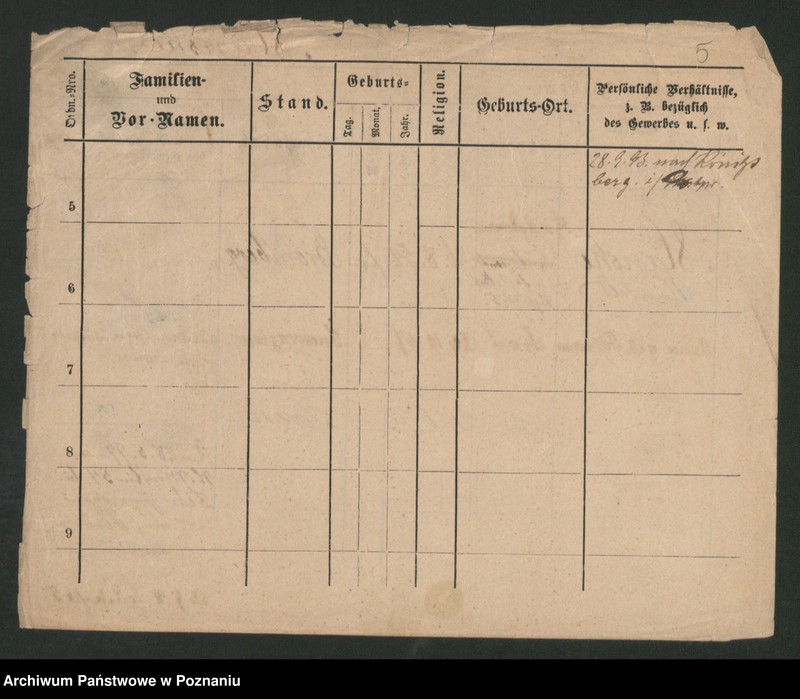 5
Ordn.-Nro.
Familien-
und
Vor-Namen.
Stand.
Geburts-
Tag.
Monat.
Jahr.
Religion.
Geburts-Ort.
Persönliche Verhältnisse,
z. B. bezüglich
des Gewerbes u. s. w.
28.9.93. nach Königs
berg. i/
5
6
7
8
9
Archiwum Państwowe w Poznaniu